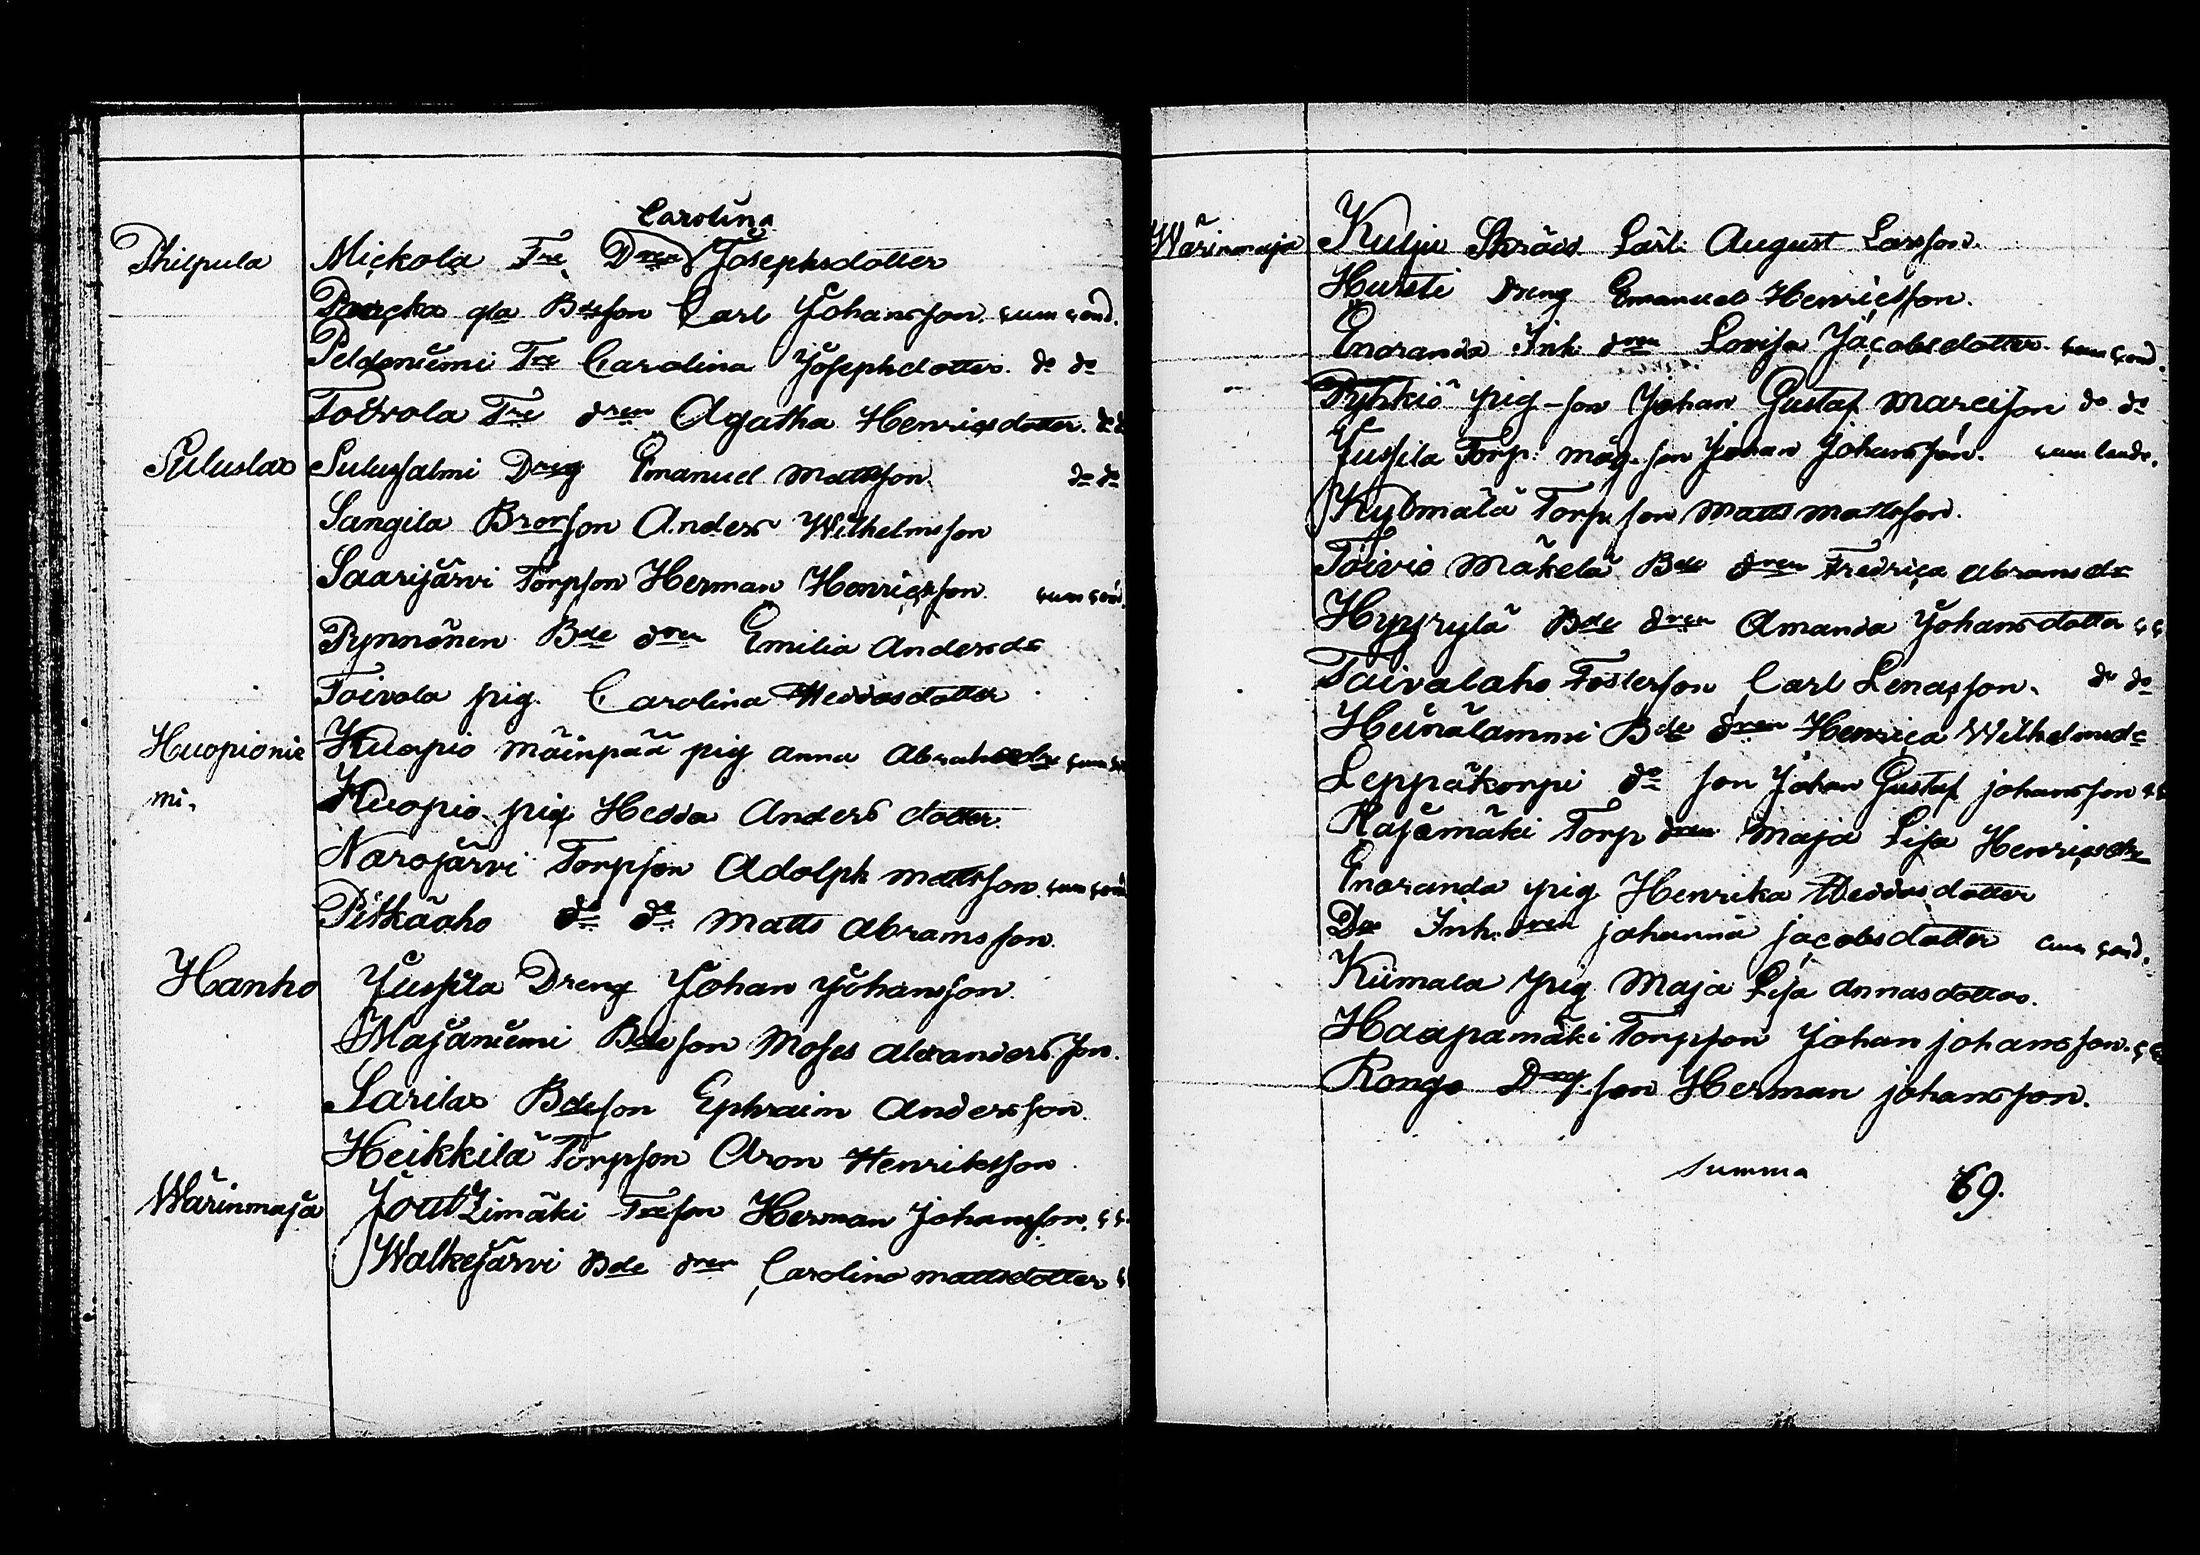 Carolina
Philpula Mickola Tre Dren Josephsdotter
Paacka gla Bdeson Carl Johansson. cum cond.
Peldoniemi Tre Carolina Josephdotter. do do
Toivola Tre dren Agatha Henricsdotter. do d
Suluslax Sulusalmi Dreng Emanuel Mattsson. do do
Sangila Brorson Anders Wilhelmsson
Saarijärvi Torpson Herman Henricsson. cum cond.
Pynnönen Bde dren Emilia Andersdr
Toivola pig. Carolina Heddasdotter
Huopionie Kuopio mäinpää pig anna Abrahsdr cum
mi. Kuopio pig Hedda Anders dotter.
Narojärvi Torpson Adolph Mattsson. cum cond
Pitkäaho do do Matts Abramsson.
Hanho Jussila Dreng Johan Johansson.
Majaniemi Bdeson Moses Alexandersson.
Sarilax Bdeson Ephraim Andersson.
Heikkilä Torpson Aron Henriksson.
Wärinmaja Joutzimäki Treson Herman Johansson. c c.
Walkejärvi Bde dren Carolina Mattsdotter c
Wärinmaja Kulju Skräd. Lärl. August Larsson.
Hursti dreng Emanuel Henricsson.
Enoranda Inh. dren Lovisa Jacobsdotter. cum cond.
Pyhkiö pig-son Johan Gustaf Marcisson do do
Jussila Torp. måg.son Johan Johansson. cum laude.
Kylmälä Torp.son Matts Mattsson.
Toivio Mäkelä Bde dren Fredrica Abramsdr
Hyyrylä Bde dren Amanda Johansdotter c c
Taivalaho Fosterson Carl Lenasson. do do
Heinälammi Bde dren Henrica Wilhelmsdr
Leppäkorpi do son Johan Gustaf Johansson c c
Rajamäki Torp dren Maja Lisa Henricsdr
Enoranda pig Henrika Heddasdotter
Do Inh. dren Johanna Jacobsdotter cum cond.
Kiimala pig Maja Lisa Annasdotter.
Haapamäki Torpson Johan Johansson. c c
Rongo Dreng.son Herman Johansson.
Summa 69.